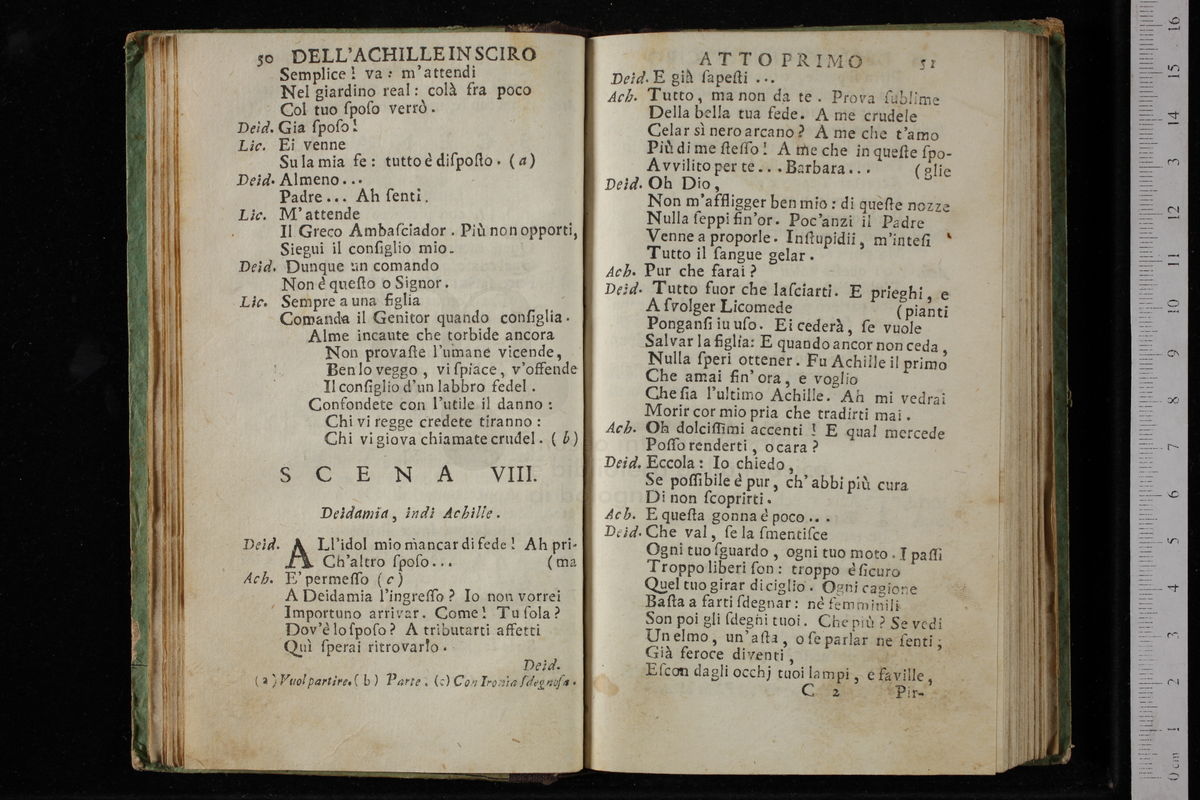 50 DELL'ACHILLE IN SCIRO
Semplice! va: m'attendi
Nel giardino real: colà fra poco
Col tuo ſpoſo verrò.
Deid. Gia ſpoſo!
Lic. Ei venne
Su la mia fe: tutto è diſpoſto. (a)
Deid. Almeno...
Padre... Ah ſenti.
Lic. M'attende
Il Greco Ambaſciador. Più non opporti,
Siegui il conſiglio mio.
Deid. Dunque un comando
Non è queſto o Signor.
Lic. Sempre a una figlia
Comanda il Genitor quando conſiglia.
Alme incaute che torbide ancora
Non provaſte l'umane vicende,
Ben lo veggo, vi ſpiace, v'offende
Il conſiglio d'un labbro fedel.
Confondete con l'utile il danno:
Chi vi regge credete tiranno:
Chi vi giova chiamate crudel. (b)
SCENA VIII.
Deidamia, indi Achille.
Deid. ALl'idol mio mancar di fede! Ah pri-
Ch'altro ſpoſo... (ma
Ach. E' permeſſo (c)
A Deidamia l'ingreſſo? Io non vorrei
Importuno arrivar. Come! Tu ſola?
Dov'è lo ſpoſo? A tributarti affetti
Quì ſperai ritrovarlo.
Deid.
(a) Vuol partire. (b) Parte. (c) Con Ironia ſdegnoſa.
ATTO PRIMO 51
Deid. E già ſapeſti...
Ach. Tutto, ma non da te. Prova ſublime
Della bella tua fede. A me crudele
Celar sì nero arcano? A me che t'amo
Più di me ſteſſo! A me che in queſte ſpo-
Avvilito per te... Barbara... (glie
Deid. Oh Dio,
Non m'affligger ben mio: di queſte nozze
Nulla ſeppi fin'or. Poc'anzi il Padre
Venne a proporle. Inſtupidii, m'inteſi
Tutto il ſangue gelar.
Ach. Pur che farai?
Deid. Tutto fuor che laſciarti. E prieghi, e
A ſvolger Licomede (pianti
Ponganſi iu uſo. Ei cederà, ſe vuole
Salvar la figlia: E quando ancor non ceda,
Nulla ſperi ottener. Fu Achille il primo
Che amai fin'ora, e voglio
Che ſia l'ultimo Achille. Ah mi vedrai
Morir cor mio pria che tradirti mai.
Ach. Oh dolciſſimi accenti! E qual mercede
Poſſo renderti, o cara?
Deid. Eccola: Io chiedo,
Se poſſibile è pur, ch'abbi più cura
Di non ſcoprirti.
Ach. E queſta gonna è poco...
Deid. Che val, ſe la ſmentiſce
Ogni tuo ſguardo, ogni tuo moto. I paſſi
Troppo liberi ſon: troppo è ſicuro
Quel tuo girar di ciglio. Ogni cagione
Baſta a farti ſdegnar: nè femminili
Son poi gli ſdegni tuoi. Che più? Se vedi
Un elmo, un'aſta, o ſe parlar ne ſenti;
Già feroce diventi,
Eſcon dagli occhj tuoi lampi, e faville,
C 2 Pir-
0 cm 1 2 3 4 5 6 7 8 9 10 11 12 13 14 15 16